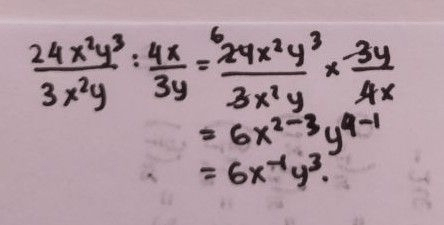 24x²y³/3x²y : 4x/3y = ⁶24x²y³/3x²y × 3y/4x
= 6x²⁻³y⁴⁻¹
= 6x⁻¹y³.